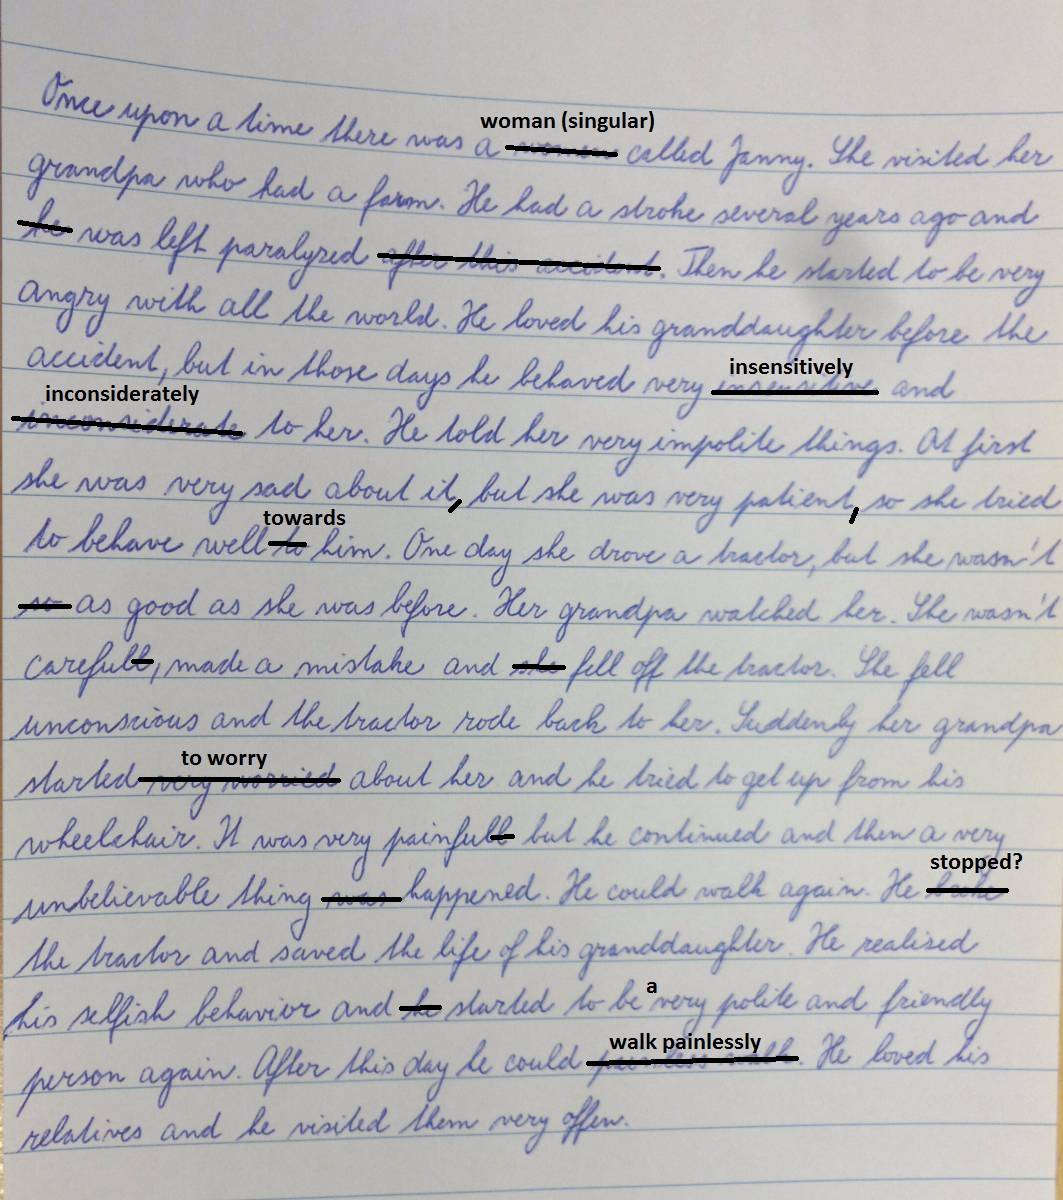 woman (singular)
Once upon a time there was a women called Janny. She visited her
grandpa who had a farm. He had a stroke several years ago and
he was left paralyzed after this accident. Then he started to be very
angry with all the world. He loved his granddaughter before the
insensitively
accident, but in those days he behaved very insensitive and
inconsiderately
inconsiderate to her. He told her very impolite things. At first
she was very sad about it, but she was very patient, so she tried
towards
to behave well to him. One day she drove a tractor, but she wasn't
so as good as she was before. Her grandpa watched her. She wasn't
carefull, made a mistake and she fell off the tractor. She fell
unconscious and the tractor rode back to her. Suddenly her grandpa
to worry
started very worried about her and he tried to get up from his
wheelchair. It was very painfull but he continued and then a very
stopped?
unbelievable thing was happened. He could walk again. He
the tractor and saved the life of his granddaughter. He realised
a
his selfish behavior and he started to be very polite and friendly
walk painlessly
person again. After this day he could painless walk. He loved his
relatives and he visited them very offen.